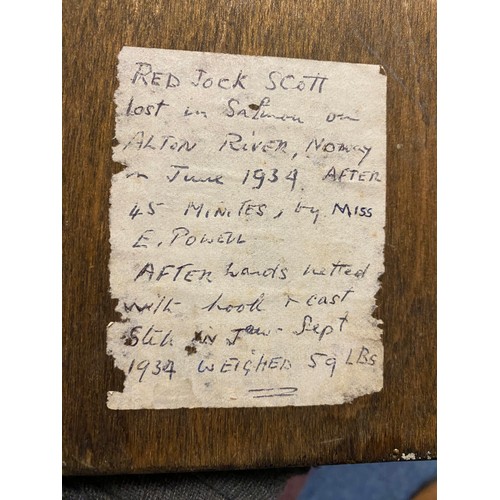 RED JOCK SCOTT
lost in Salmon on
ALTON RIVER, Norway
in June 1934. AFTER
45 MINITES, by MISS
E. POWELL
AFTERwards netted
with hook + cast
Still in Jaw - Sept
1934 WEIGHED 59 LBS